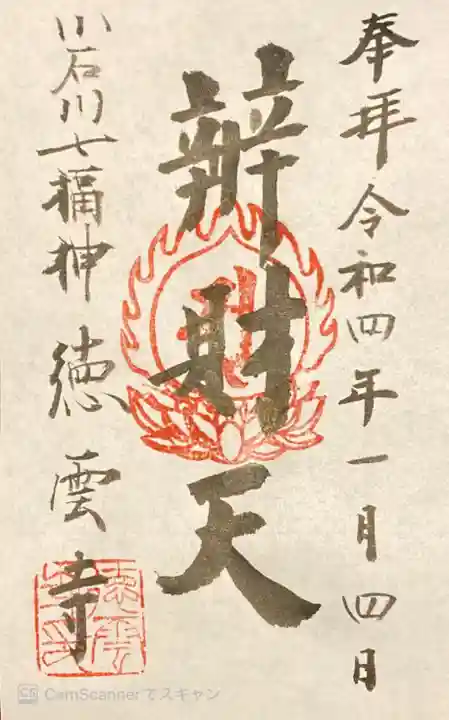 奉拝 令和四年一月四日
辨財天
小石川七福神 徳雲寺
CS CamScannerでスキャン